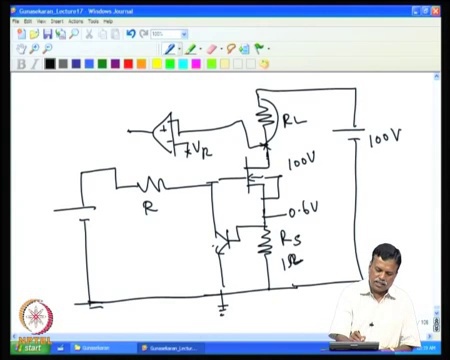 Gunasekaran_Lecture17 - Windows Journal
File Edit View Insert Actions Tools Help
100%
B I
RL
+
-
VR
100V
100V
R
0.6V
RS
1Ω
NPTEL
start
Gunasekaran
Gunasekaran_Lectur...